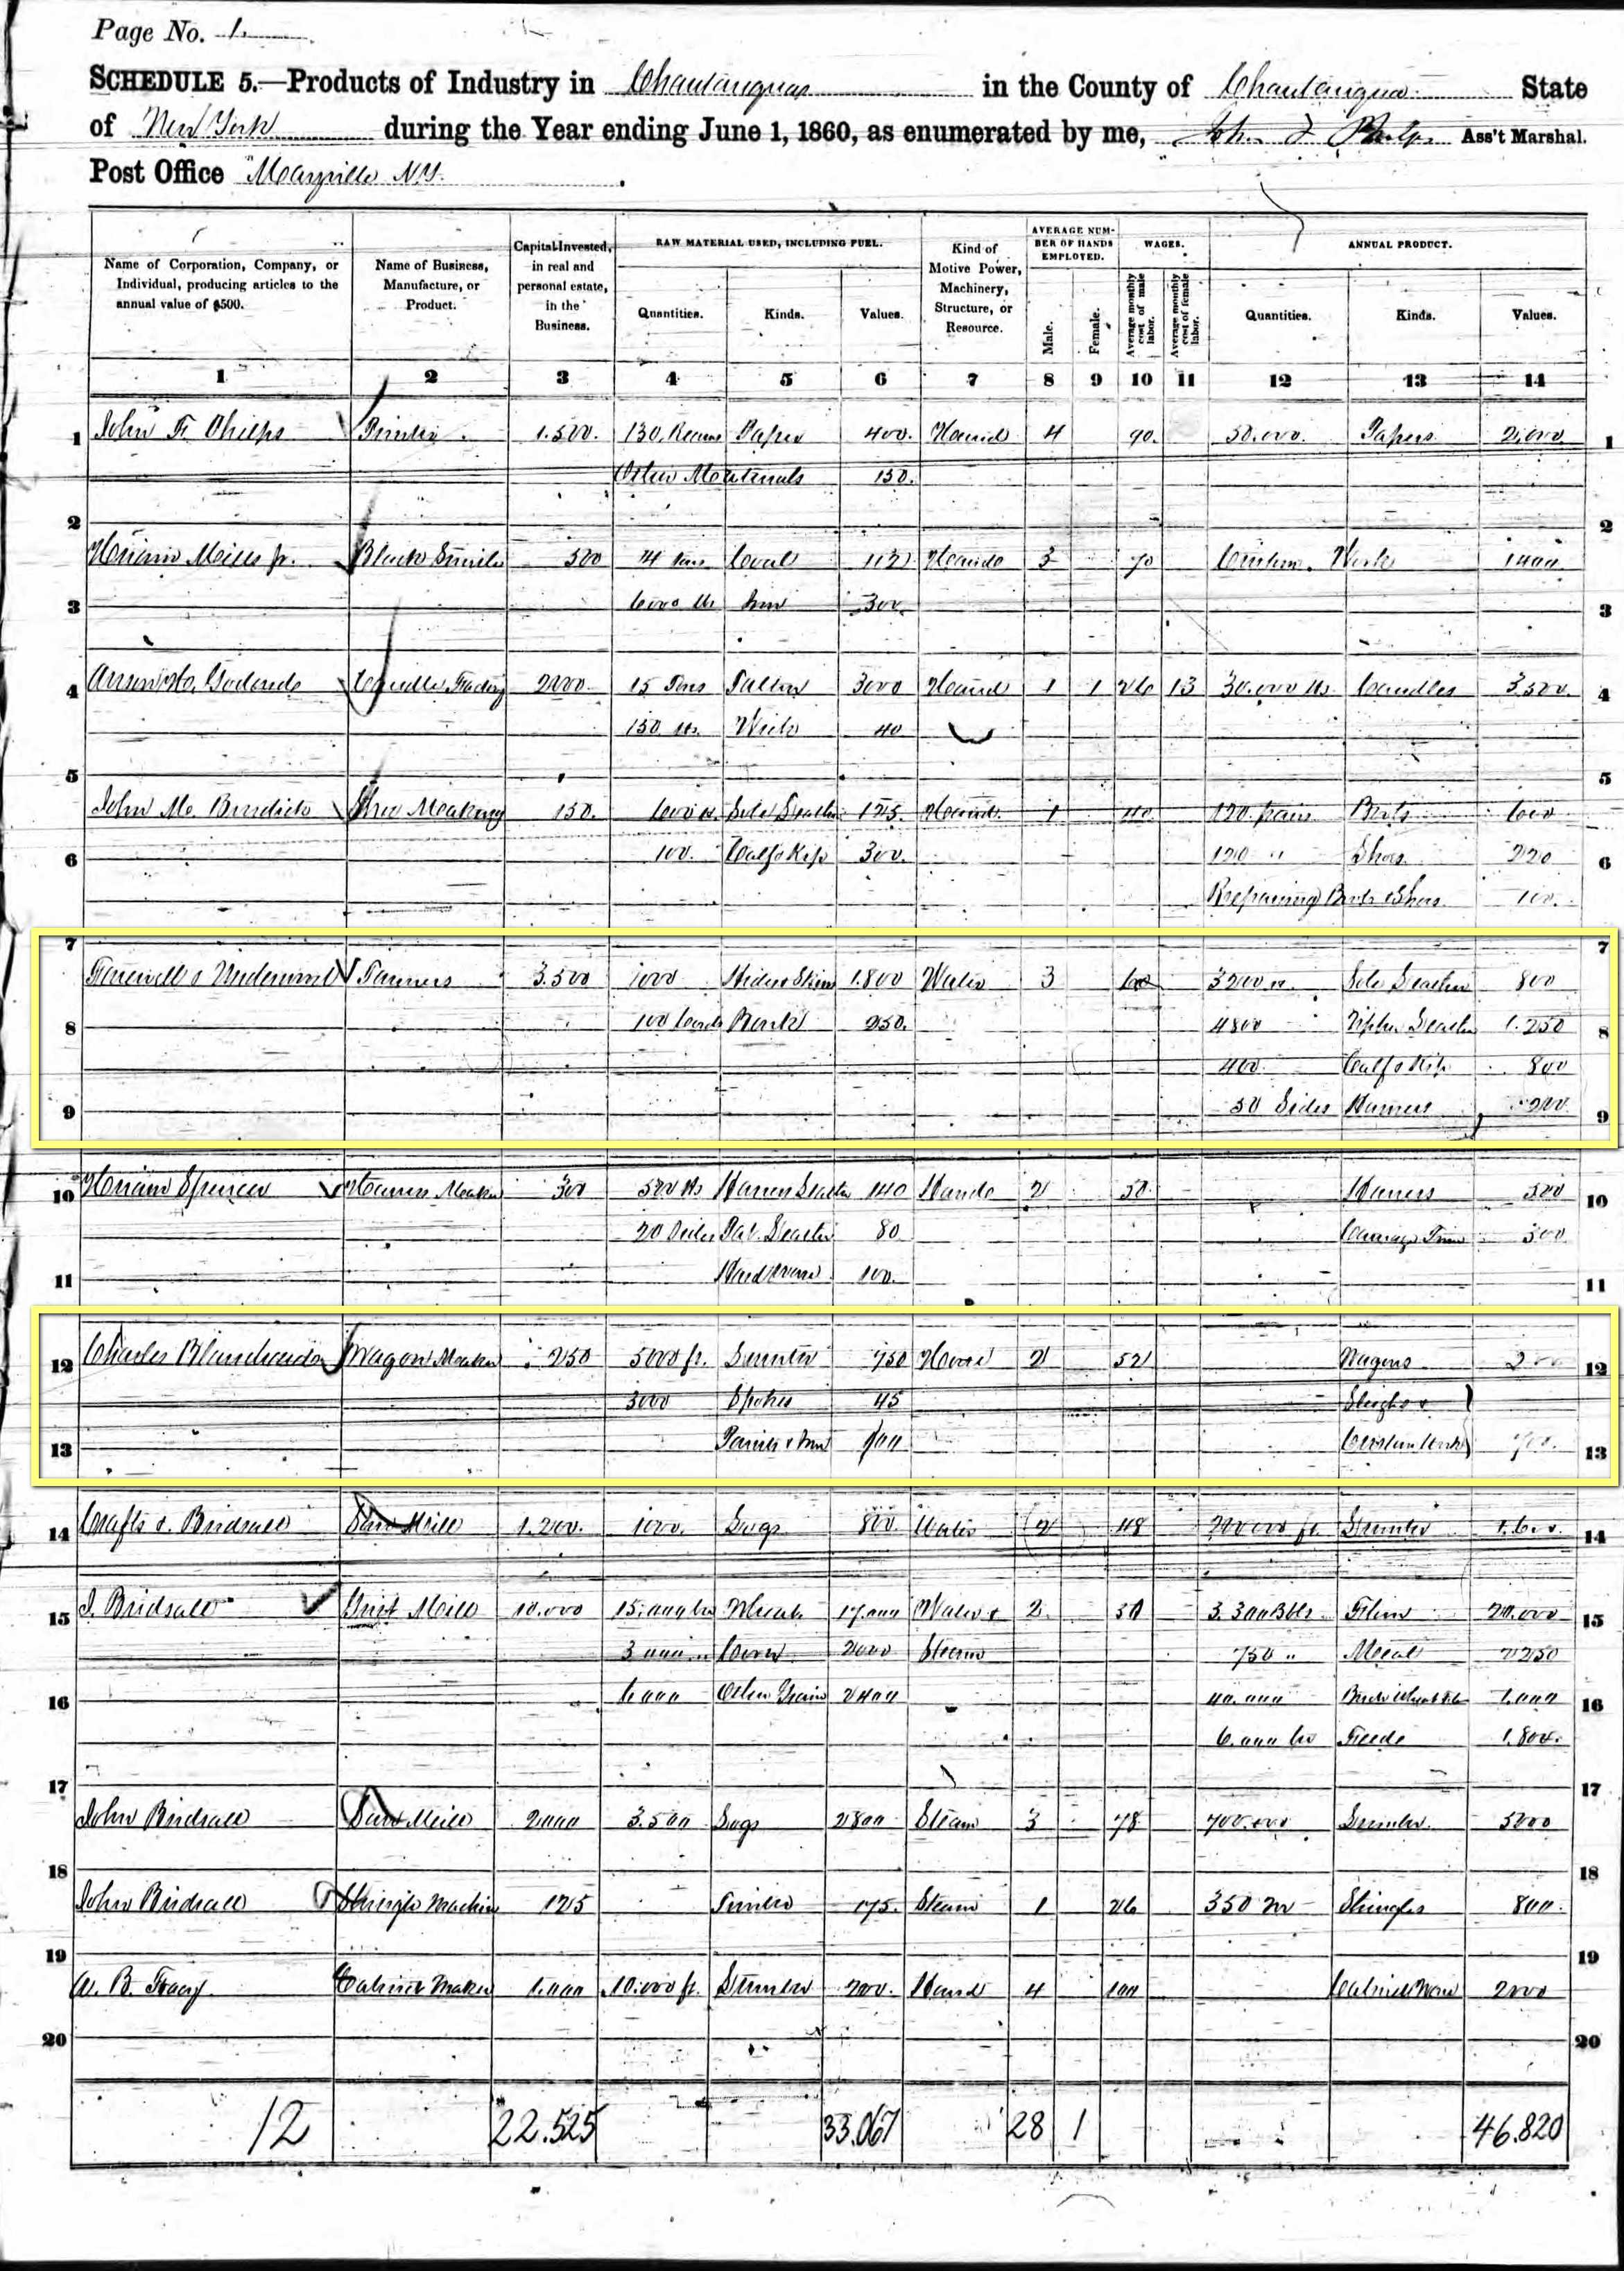 Page No. 1.
SCHEDULE 5.—Products of Industry in Chautauqua in the County of Chautauqua State
of New York during the Year ending June 1, 1860, as enumerated by me, John F Phelps Ass't Marshal.
Post Office Mayville N.Y.
Name of Corporation, Company, or Individual, producing articles to the annual value of $500.
Name of Business, Manufacture, or Product.
Capital Invested, in real and personal estate, in the Business.
RAW MATERIAL USED, INCLUDING FUEL.
Quantities. Kinds. Values.
Kind of Motive Power, Machinery, Structure, or Resource.
AVERAGE NUMBER OF HANDS EMPLOYED.
Male. Female.
WAGES.
Average monthly cost of male labor. Average monthly cost of female labor.
ANNUAL PRODUCT.
Quantities. Kinds. Values.
1 2 3 4 5 6 7 8 9 10 11 12 13 14
1 John F. Phelps Printer 1.500. 130 Reams Paper 400. Hand 4 90. 50.000. Papers 2.000 1
Other Materials 150.
2 2
Hiram Mills Jr. Black Smith 500 14 tons Coal 112 Hands 3 70 Custom Work 1400
3 6000 lbs Iron 300. 3
4 Anson H. Candle Factory 2000 15 Tons Tallow 3000 Hand 1 1 26 13 30.000 lbs Candles 3.500. 4
150 lbs. Wick 40
5 5
John M. Burdick Shoe Making 150. 1000 lbs Sole Leather 125. Hand 1 40 120 pairs Boots 600
6 100. Calf & Kip 300. 120 " Shoes 220 6
Repairing Boots & Shoes 100.
7 7
Farewell & Underwood Tanners 3.500 1000 Hides & Skins 1.800 Water 3 3200 " Sole Leather 800
8 100 Cords Bark 250. 4800 Upper Leather 1.250 8
400. Calf & Kip 800
9 50 Sides Harness 200 9
10 Hiram Spencer Harness Maker 300 500 lbs Harness Leather 140 Hands 2 50. Harness 500 10
20 Sides Pat. Leather 80 Carriage Trim 300
11 Hardware 100. 11
12 Charles Wagon Maker 250 5000 ft. Lumber 750 2 52 Wagons 12
3000 Spokes 45 Sleighs &
13 Paints & Iron Custom Work 700. 13
14 Crafts & Birdsall Saw Mill 1.200. 1000. Logs 800. Water 2 48 200000 ft. Lumber 1.600. 14
15 J. Birdsall Grist Mill 10.000 15.000 bu Wheat 17.000 Water & 2. 50 3.300 Bbls Flour 20.000 15
3.000 " Corn 2000 Steam 750 " Meal 2250
16 6.000 Other Grain 2400 40.000 Buck Wheat 1.000 16
6.000 bu Feed 1.800.
17 17
John Birdsall Saw Mill 2.000 3.500 Logs 2800 Steam 3 78 700.000 Lumber. 5000
18 18
John Birdsall Shingle Machine 125 Timber 175. Steam 1 26 350 M Shingles 800.
19 19
W. B. Tracy Cabinet Maker 1.000 10.000 ft. Lumber 200. Hand 4 100 Cabinet Ware 2000
20 20
12 22.525 33.067 28 1 46.820